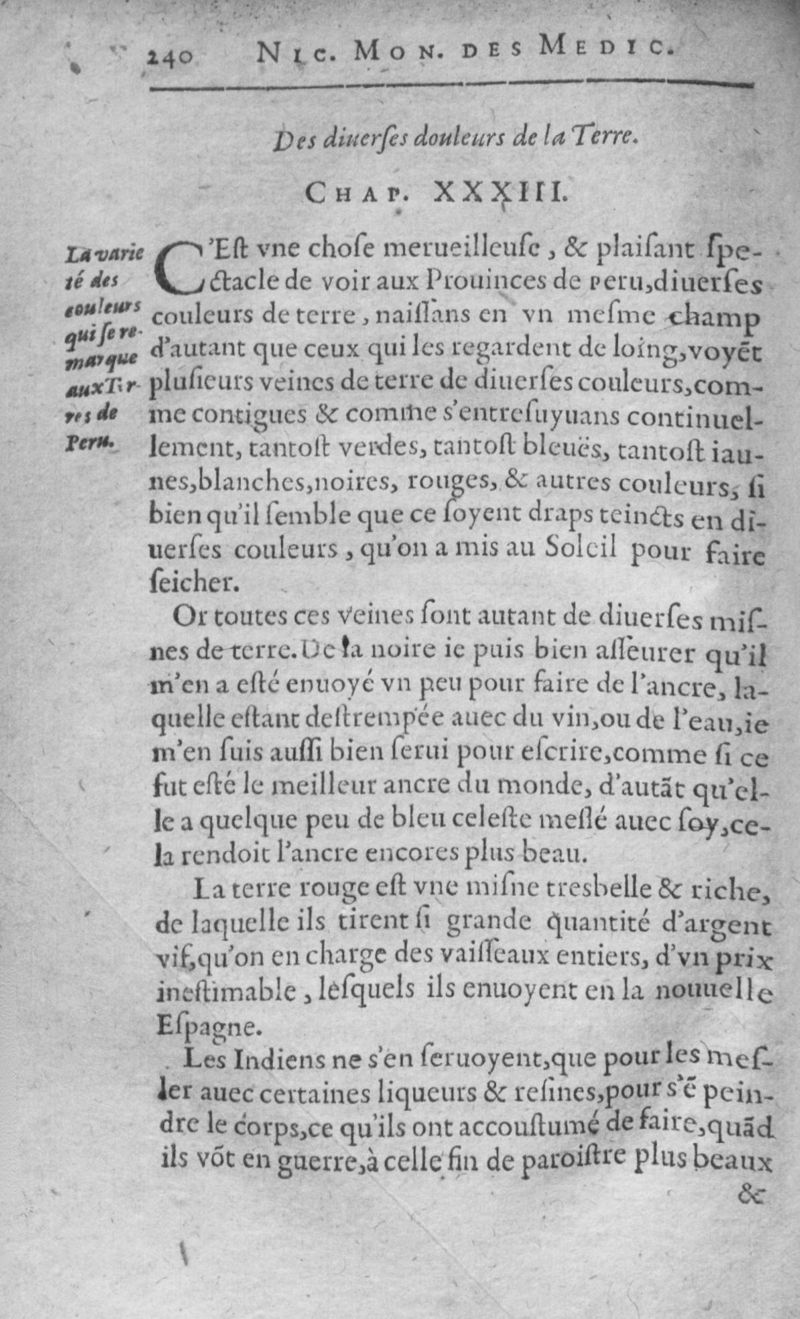 240 NIC. MON. DES MEDIC.
Des diuerſes douleurs de la Terre.
CHAP. XXXIII.
La varie
té des
couleurs
qui ſe re-
marque
aux Ter-
res de
Peru.
C'Eſt vne choſe merueilleuſe, & plaiſant ſpe-
ctacle de voir aux Prouinces de Peru, diuerſes
couleurs de terre, naiſſans en vn meſme champ
d'autant que ceux qui les regardent de loing, voyẽt
pluſieurs veines de terre de diuerſes couleurs, com-
me contigues & comme s'entreſuyuans continuel-
lement, tantoſt verdes, tantoſt bleuës, tantoſt iau-
nes, blanches, noires, rouges, & autres couleurs, ſi
bien qu'il ſemble que ce ſoyent draps teincts en di-
uerſes couleurs, qu'on a mis au Soleil pour faire
ſeicher.
Or toutes ces veines ſont autant de diuerſes miſ-
nes de terre. De la noire ie puis bien aſſeurer qu'il
m'en a eſté enuoyé vn peu pour faire de l'ancre, la-
quelle eſtant deſtrempée auec du vin, ou de l'eau, ie
m'en ſuis auſſi bien ſerui pour eſcrire, comme ſi ce
fut eſté le meilleur ancre du monde, d'autãt qu'el-
le a quelque peu de bleu celeſte meſlé auec ſoy, ce-
la rendoit l'ancre encores plus beau.
La terre rouge eſt vne miſne tresbelle & riche,
de laquelle ils tirent ſi grande quantité d'argent
vif, qu'on en charge des vaiſſeaux entiers, d'vn prix
ineſtimable, leſquels ils enuoyent en la nouuelle
Eſpagne.
Les Indiens ne s'en ſeruoyent, que pour les meſ-
ler auec certaines liqueurs & reſines, pour s'ẽ pein-
dre le corps, ce qu'ils ont accouſtumé de faire, quãd
ils võt en guerre, à celle fin de paroiſtre plus beaux
&